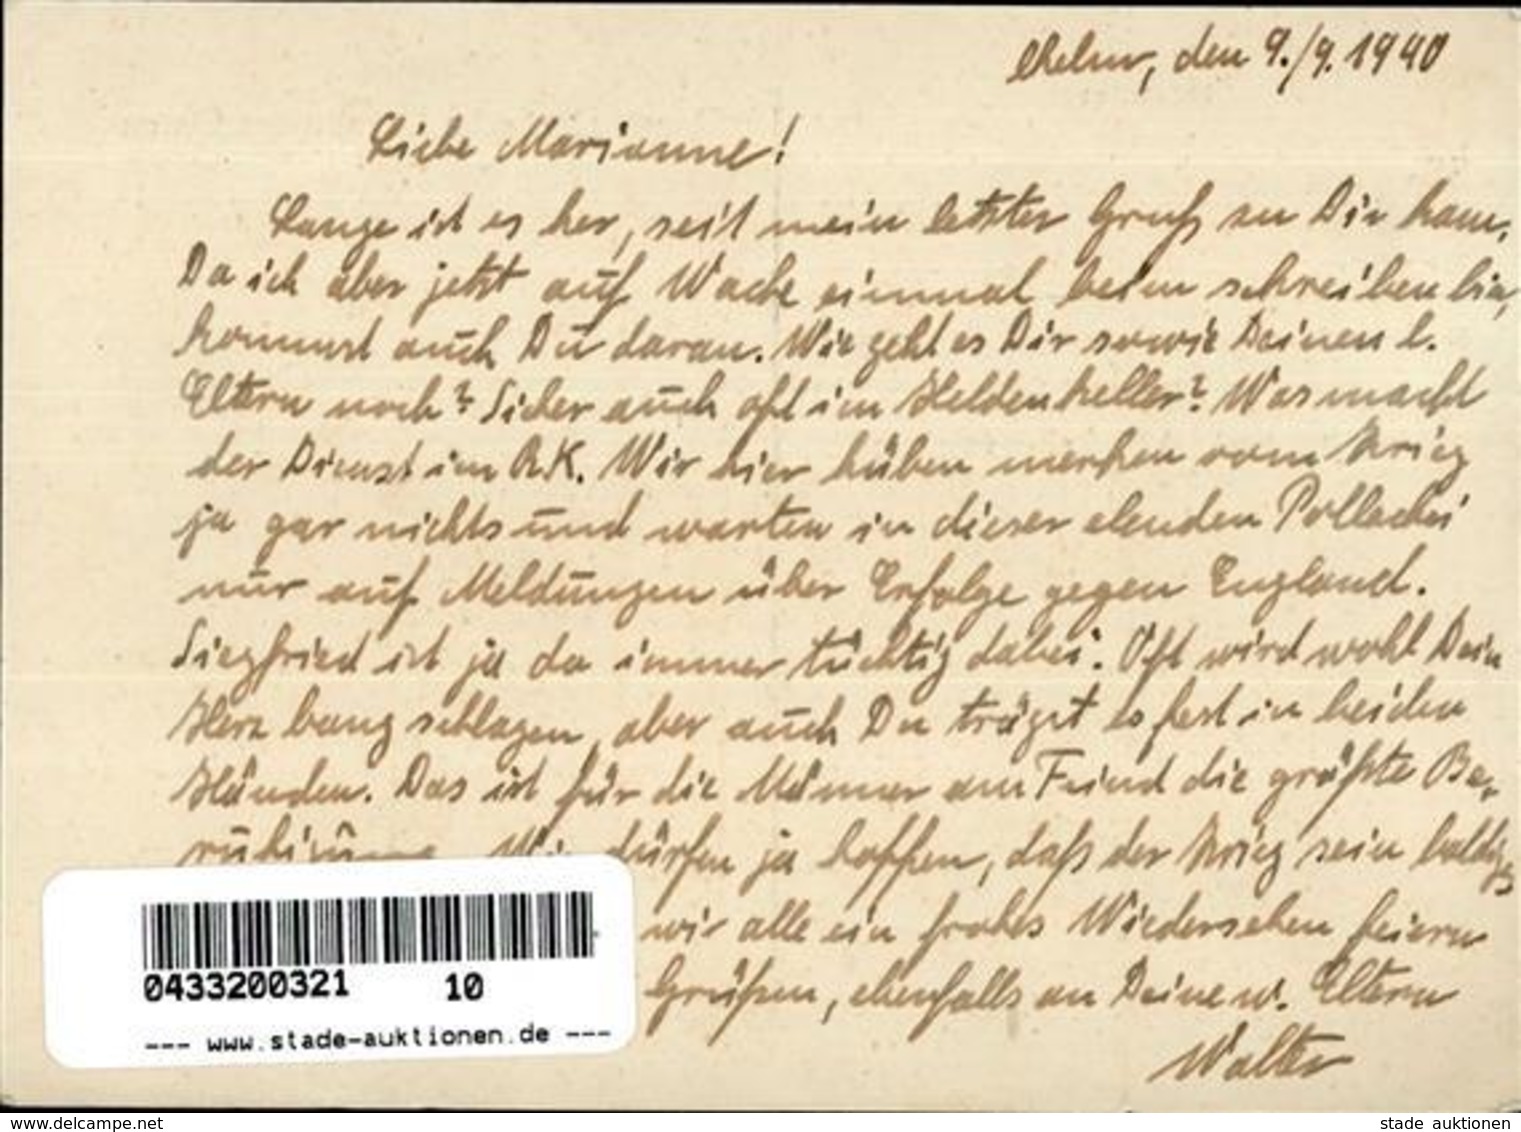 Chelm, den 9./9. 1940
Liebe Marianne!
Lange ist es her, seit mein letzter Gruß zu Dir kam.
Da ich aber jetzt auf Wache einmal beim schreiben bin,
kommst auch Du daran. Wie geht es Dir sowie Deinen l.
Eltern noch? Sicher auch oft im Heldenkeller? Was macht
der Dienst im R.K. Wir hier hüben merken vom Krieg
ja gar nichts und warten in dieser elenden Pollackei
nur auf Meldungen über Erfolge gegen England.
Siegfried ist ja da immer tüchtig dabei. Oft wird wohl Dein
Herz bang schlagen, aber auch Du trägst es fest in beiden
Händen. Das ist für die Männer am Feind die größte Be-
ruhigung. Wir dürfen ja hoffen, daß der Krieg sein baldiges
wir alle ein frohes Wiedersehen feiern
Grüßen, ebenfalls an Deine w. Eltern
Walter
0433200321 10
--- www.stade-auktionen.de ---
www.delcampe.net
stade auktionen